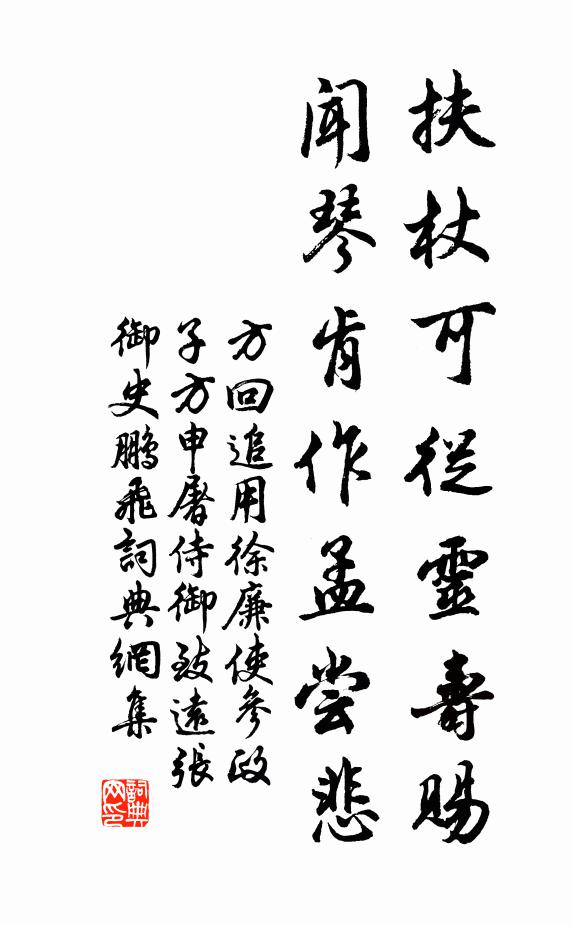 扶杖可從靈壽賜
聞琴肯作孟尝悲
方回追用徐廉使參政
子方申屠侍御致遠張
御史鵬飛詞典網集
詞典
网印